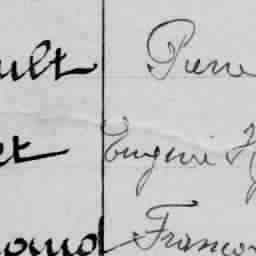 ult Pierre
et Eugène H
oud Françoi